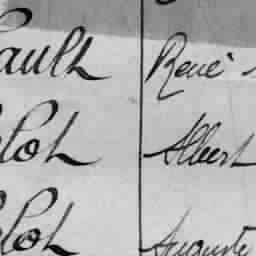 ault René
lot Albert
lot Auguste